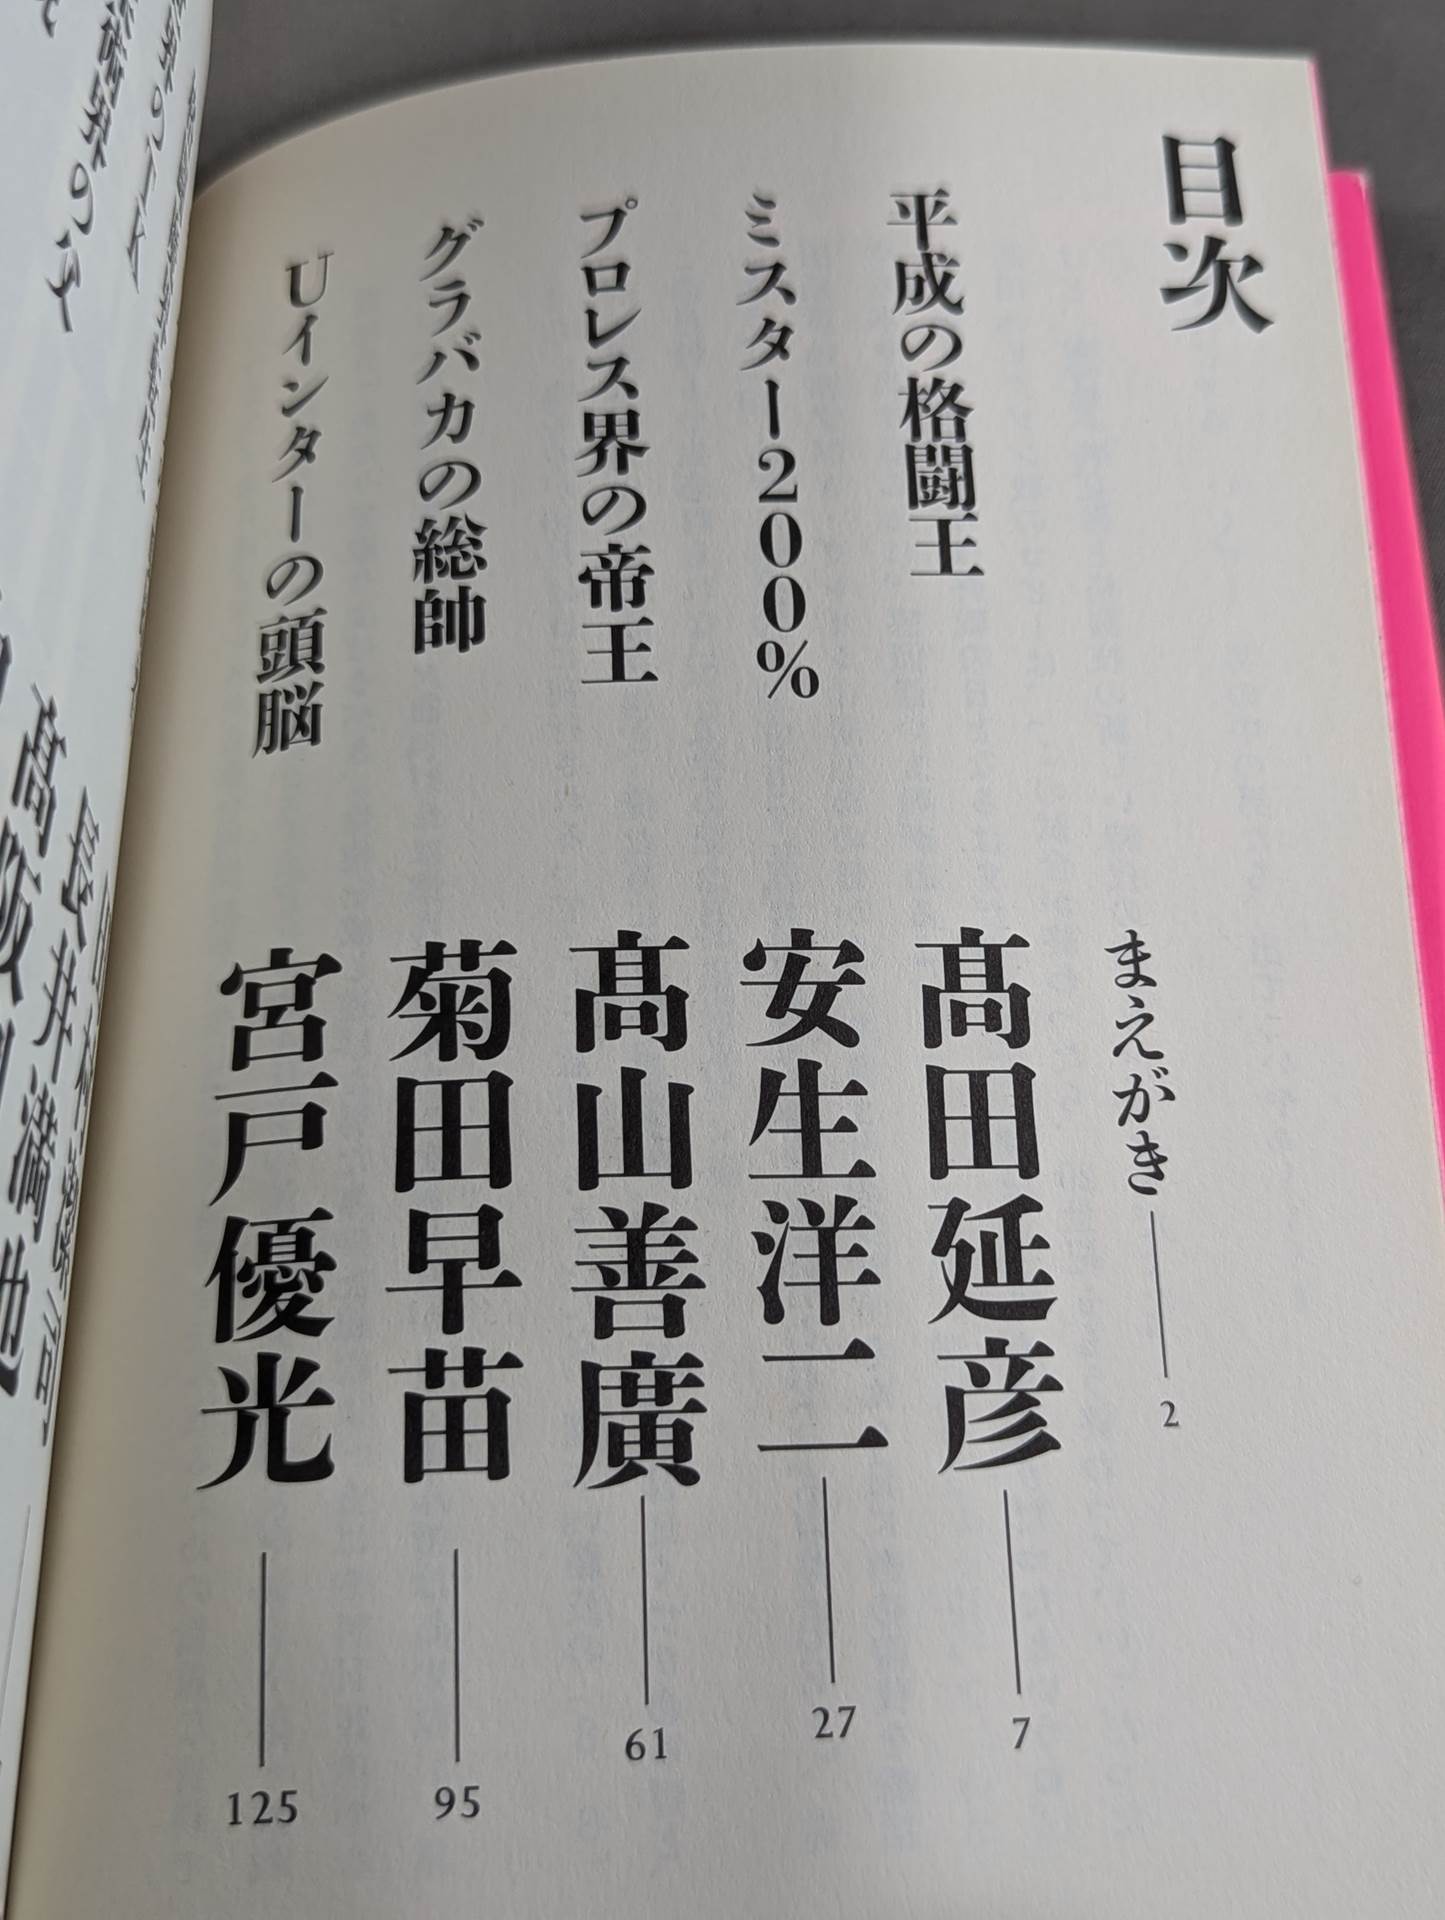 目次
まえがき 2
平成の格闘王 髙田延彦 7
ミスター200% 安生洋二 27
プロレス界の帝王 髙山善廣 61
グラバカの総帥 菊田早苗 95
Uインターの頭脳 宮戸優光 125